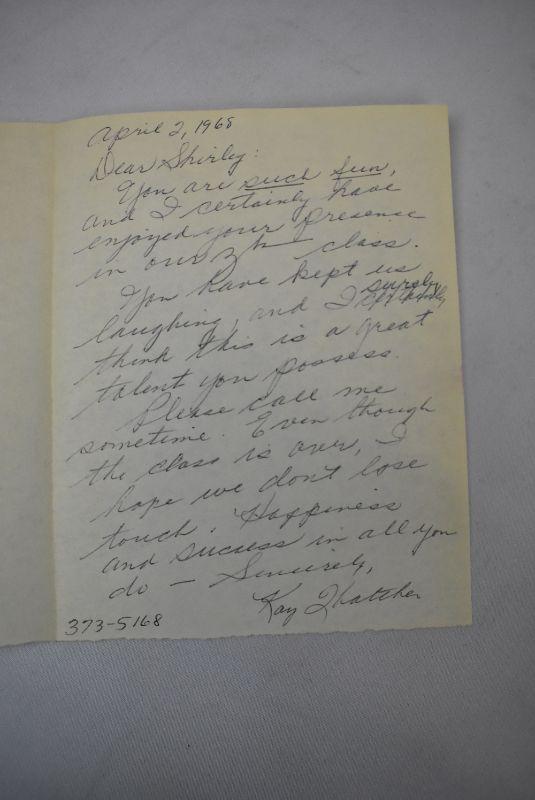 April 2, 1968
Dear Shirley:
You are such fun,
and I certainly have
enjoyed your presence
in our class.
You have kept us
laughing, and I surely
think this is a great
talent you possess.
Please call me
sometime. Even though
the class is over, I
hope we don't lose
touch. Happiness
and success in all you
do — Sincerely,
Kay Thatcher
373-5168